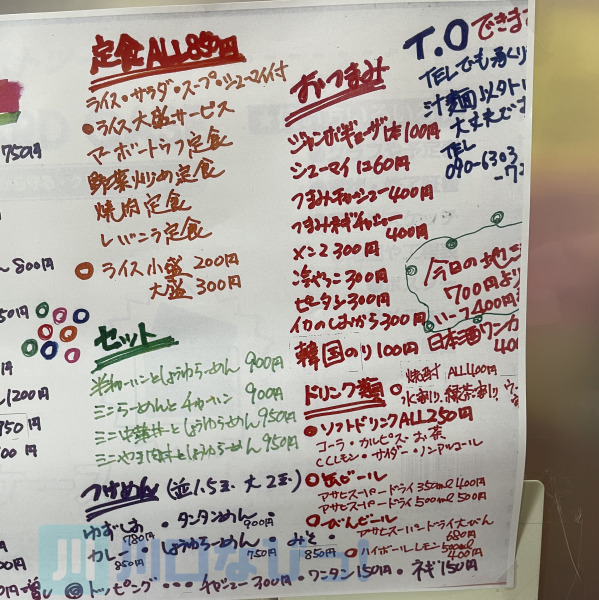 750円
～800円
50円
1200円
950円
00円
定食 ALL850円
ライス・サラダ・スープ・シューマイ付
●ライス大盛サービス
マーボードウフ定食
野菜炒め定食
焼肉定食
レバニラ定食
○ライス小盛 200円
大盛 300円
セット
半チャーハンとしょうゆらーめん 900円
ミニらーめんとチャーハン 900円
ミニ中華丼としょうゆらーめん 950円
ミニやき肉丼としょうゆらーめん 950円
つけめん (並1.5玉、大2玉)
ゆずしお 780円・タンタンめん 900円
カレー 850円・しょうゆらーめん 750円・みそ 850円
トッピング・・・チャーシュー300円・ワンタン150円・ネギ150円
おつまみ
ジャンボギョーザ1ケ100円
シューマイ1コ60円
つまみチャーシュー400円
つまみネギチャーシュー
400円
メンマ300円
冷やっこ300円
ピータン300円
イカのしおから300円
韓国のり100円
ドリンク類
●ソフトドリンクALL250円
コーラ・カルピス・お茶
CCレモン・サイダー・ノンアルコール
○缶ビール
アサヒスーパードライ350ml 400円
アサヒスーパードライ500ml 500円
○びんビール
アサヒスーパードライ大びん
680円
○ハイボールレモン500ml
400円
T.Oできます
TELでも承り
汁麺以外
大丈夫です
TEL
090-6303
-7
今日の地
700円より
ハーフ400円
日本酒ワンカ
400
○焼酎 ALL400円
水割り、緑茶割り、ウ
川口